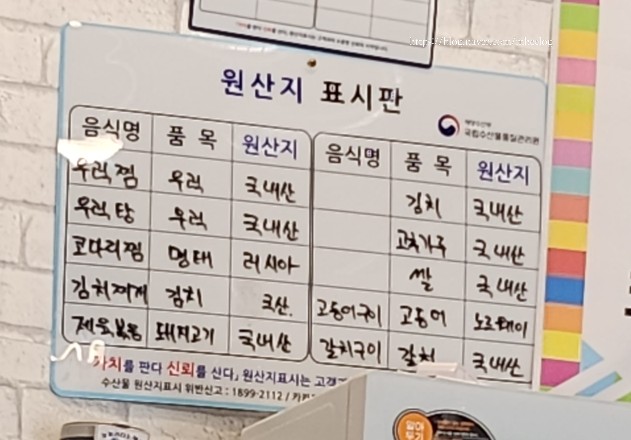 원산지 표시판
해양수산부
국립수산물품질관리원
음식명 품 목 원산지
우럭찜 우럭 국내산
우럭탕 우럭 국내산
코다리찜 명태 러시아
김치찌개 김치 국산.
제육볶음 돼지고기 국내산
음식명 품 목 원산지
김치 국내산
고춧가루 국내산
쌀 국내산
고등어구이 고등어 노르웨이
갈치구이 갈치 국내산
가치를 판다 신뢰를 산다」 원산지표시는 고객
수산물 원산지표시 위반신고 : 1899-2112 / 카카
알아
두기